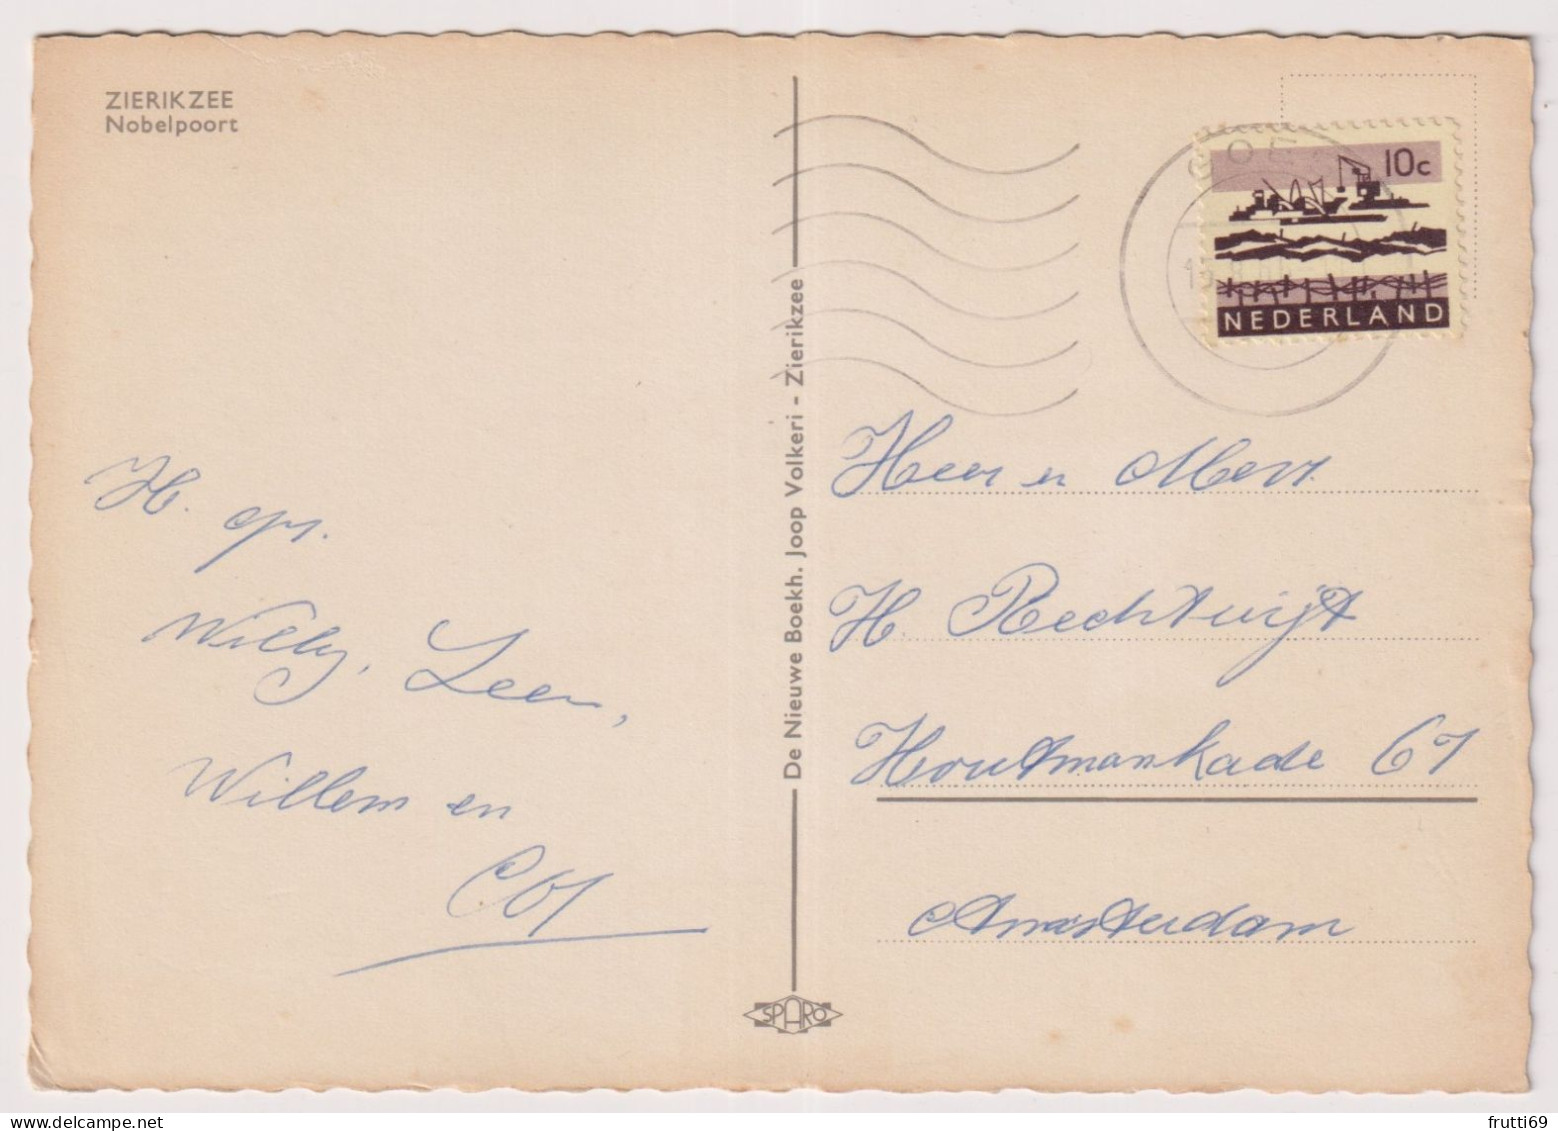 ZIERIKZEE
Nobelpoort
H. gr.
Willy, Leen,
Willem en
De Nieuwe Boekh. Joop Volkeri - Zierikzee
SPARO
GOES
10c
NEDERLAND
Heer en Mevr.
H. Rechtuijt
Houtmankade 67
Amsterdam
frutti69